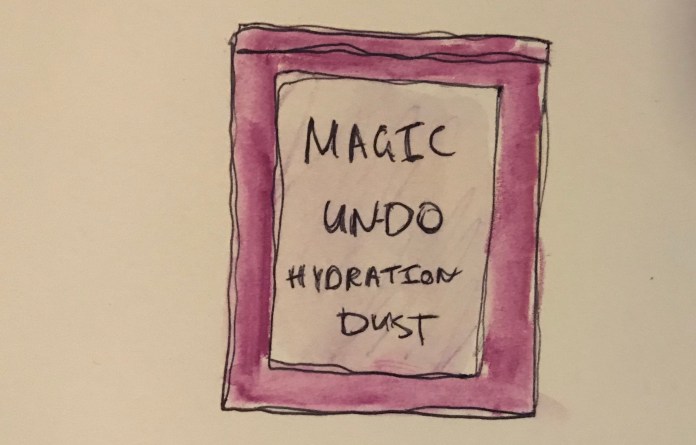 MAGIC
UNDO
HYDRATION
DUST